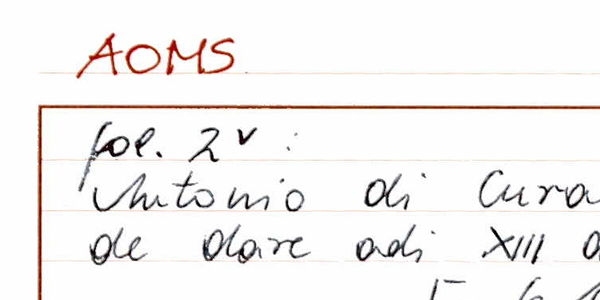 AOMS
fol. 2v :
Antonio di Cura
de dare adi XIII